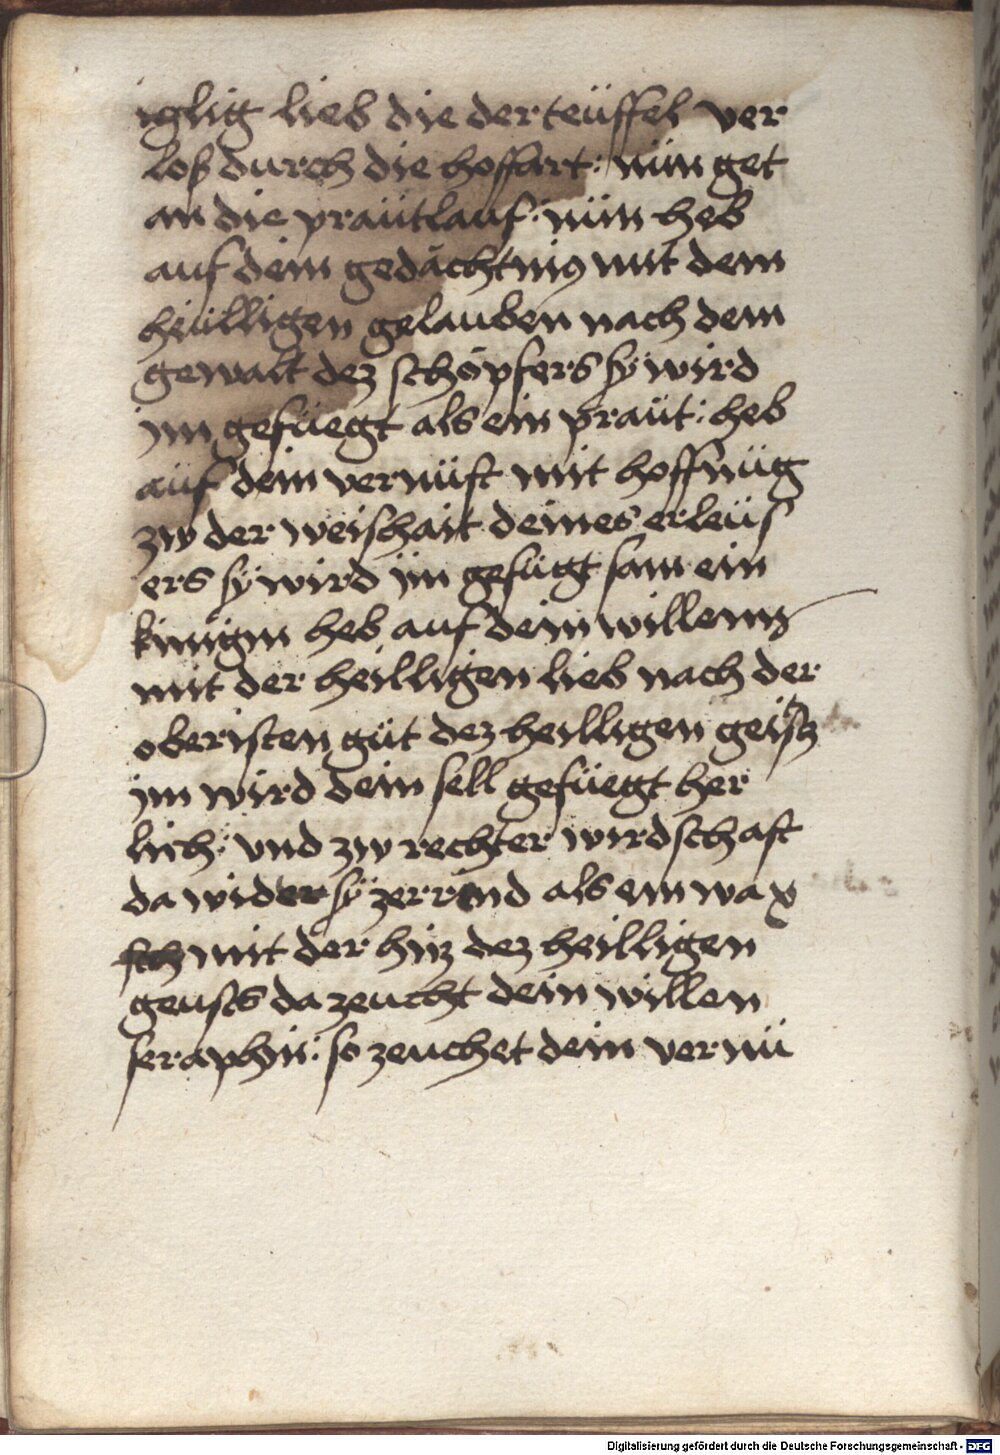 iglig lieb die der teüffel ver
loß durch die hoffart: nün get
an die präutlauf: nün heb
auf dein gedächtnis mit dem
heilligen gelauben nach dem
gewalt dez schöpfers sÿ wird
im gefüegt als ein praüt: heb
auf dein vernüft mit hoffnüg
zw der weishait deines erleüs
ers sÿ wird im gefügt sam ein
künigin heb auf dein willenn
mit der heilligen lieb nach der
oberisten güt dez heilligen geistz
im wird dein sell gefüegt her
lich: vnd zw rechter wirdschaft
da wider sÿ zerrind als ein wax
sch mit der hitz dez heilligen
geists da zeucht dein willen
seraphin: so zeuchet dein vernü
Digitalisierung gefördert durch die Deutsche Forschungsgemeinschaft - DFG